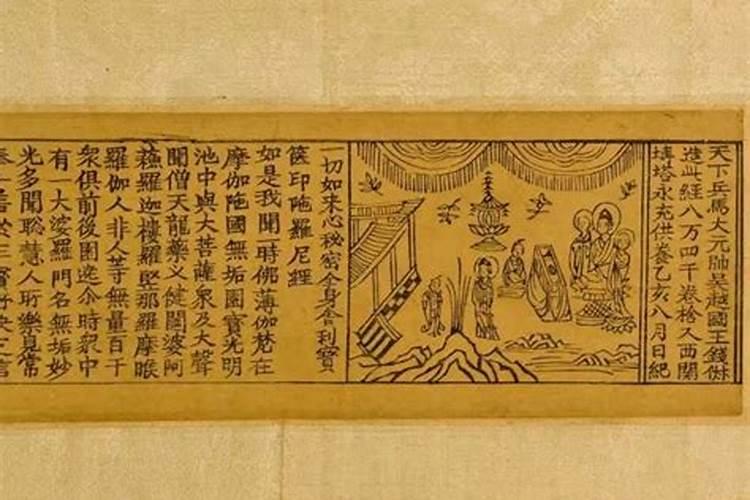 天下兵馬大元帥吳越國王錢俶
造此經八万四千卷捨入西關
塼塔永充供養乙亥八月日紀
一切如來心秘密全身舍利寶
篋印陁羅尼經
如是我聞一時佛薄伽梵在
摩伽陁國無垢園寶光明
池中與大菩薩衆及大聲
聞僧天龍藥叉健闥婆阿
蘓羅迦樓羅緊那羅摩睺
羅伽人非人等無量百千
衆俱前後圍遶尒時衆中
有一大婆羅門名無垢妙
光多聞聡慧人所樂見常